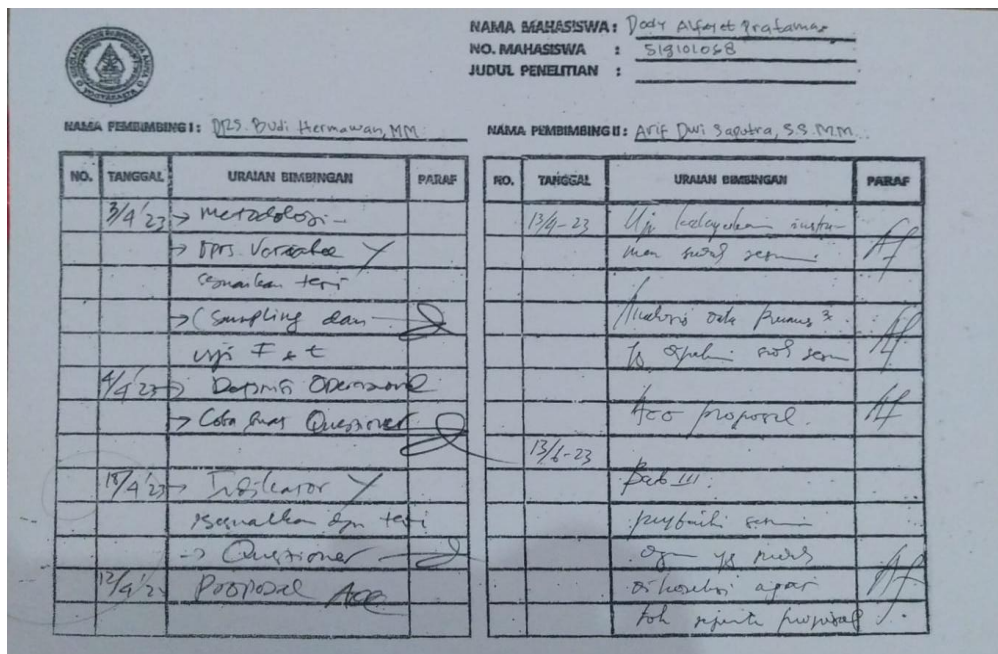 NAMA MAHASISWA : Dody Alfayet Pratama
NO. MAHASISWA : 519101068
JUDUL PENELITIAN :
NAMA PEMBIMBING I : DRS. Budi Hermawan, MM
NAMA PEMBIMBING II : Arif Dwi Saputra, S.S. M.M.
NO. TANGGAL URAIAN BIMBINGAN PARAF
3/4'23 → Metodologi -
→ Variabel Y
sesuaikan teori
→ ( Sampling dan
uji F & t
4/4'23 → Operasional
→ Coba buat Quesioner
18/4'23 → Indikator Y
disesuaikan dgn teori
→ Questioner
12/4'2 Proposal Acc
NO. TANGGAL URAIAN BIMBINGAN PARAF
13/4-23 Uji kelayakan instru-
men sudah sesuai.
Analisis data
yg dipakai sudah sesuai
Acc proposal.
13/6-23
Bab III.
perbaiki sesuai
dgn yg sudah
dikoreksi agar
tdk seperti proposal